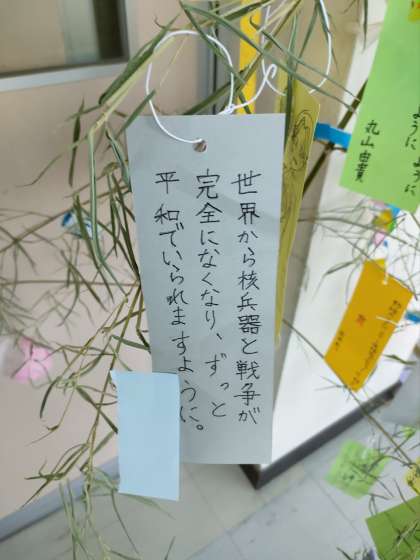 世界から核兵器と戦争が
完全になくなり、ずっと
平和でいられますように。
ように
丸山由貴